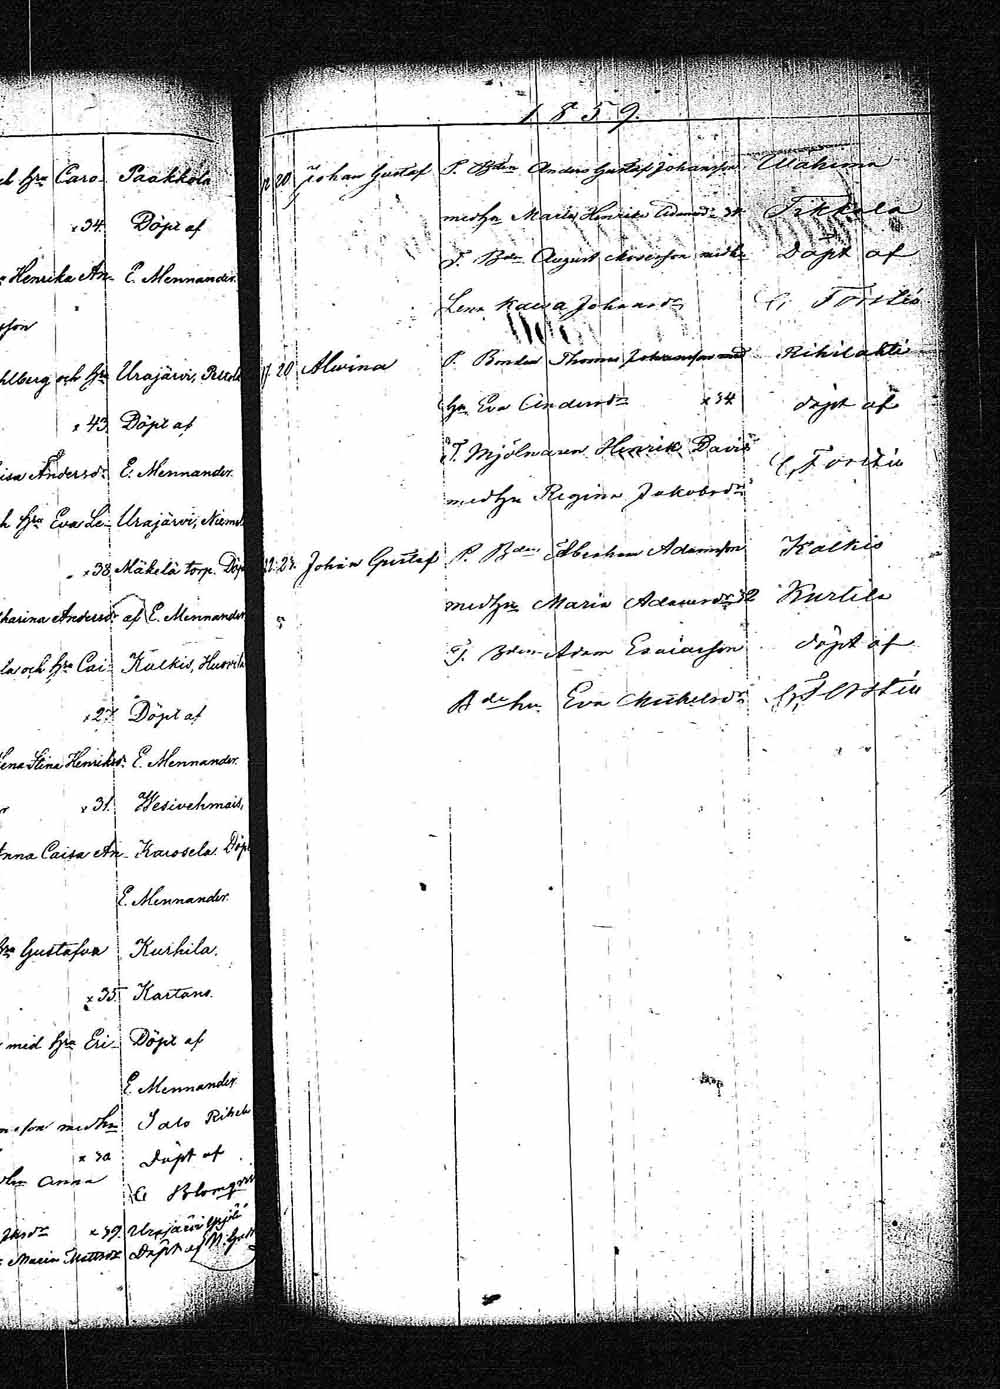 ch hra Caro- Paakkola
x 34. Döpt af
Henrika An- E. Mennander.
sson
hlberg och hra Urajärvi, Perola
x 43. Döpt af
isa Andersdr. E. Mennander.
h hra Eva Le- Urajärvi, Niemel
x 38. Mäkelä torp. Döp
tharina Andersdr. af E. Mennander
la och hra Cai- Kalkis, Huovila
x 27. Döpt af
Lena Stina Henriksdr. E. Mennander.
x 31. Wesivehmais,
Anna Caisa An- Karosela. Döp
E. Mennander.
hra Gustafva Kurhila.
x 35. Kartano.
med hra Eri- Döpt af
E. Mennander.
sson med hu Salo
Döpt af
Anna
x 39. Urajärvi
Maria Döpt af
1859.
20 Johan Gustaf P. Bdn Anders Gustaf Johansson
med hu Maria Henrika
T. Bdn August med hu
Döpt af
Lena Johansdr G Forstén
17. 20 Alvina P. Bonden Thomas Johansson med
hu Eva Andersdr x 34 döpt af
T. Mjölnaren Henrik Davids
G. Forstén
med hu Regina Jakobsdr
22. 23. Johan Gustaf P. Bdn Abraham Adamsson Kalkis
med hu Maria Adamsdr 32 Kurtila
T. Bdn Adam Esaiasson döpt af
Bde hu Eva Mickelsdr G. Forstén